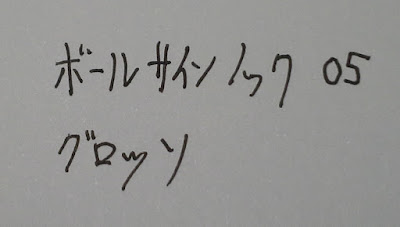 ボールサインノック 05
グロッソ